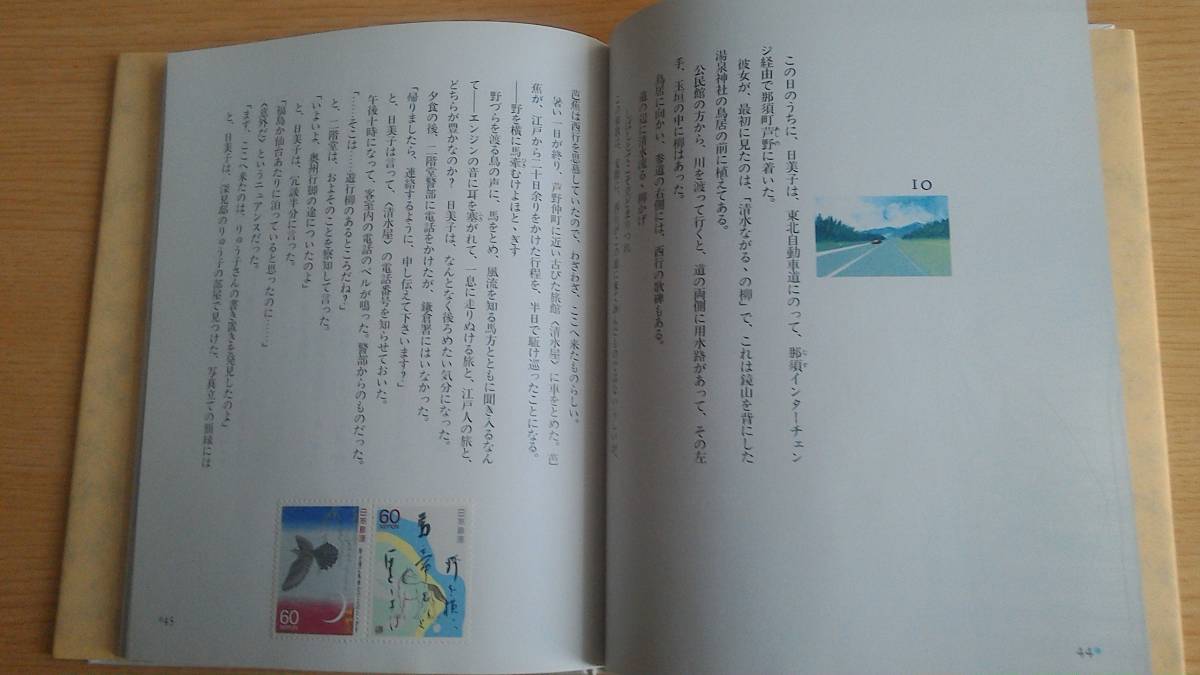 10
この日のうちに、日美子は、東北自動車道にのって、那須インターチェン
ジ経由で那須町芦野に着いた。
彼女が、最初に見たのは、「清水ながるゝの柳」で、これは鏡山を背にした
湯泉神社の鳥居の前に植えてある。
公民館の方から、川を渡って行くと、道の両側に用水路があって、その左
手、玉垣の中に柳はあった。
鳥居に向かい、参道の右側には、西行の歌碑もある。
道の辺に清水流るゝ柳かげ
44
芭蕉は西行を思慕していたので、わざわざ、ここへ来たものらしい。
暑い一日が終り、芦野仲町に近い古びた旅館〈清水屋〉に車をとめた。芭
蕉が、江戸から二十日余りをかけた行程を、半日で駆け巡ったことになる。
――野を横に馬牽むけよほとゝぎす
野づらを渡る鳥の声に、馬をとめ、風流を知る馬方とともに聞き入るなん
て――エンジンの音に耳を塞がれて、一息に走りぬける旅と、江戸人の旅と、
どちらが豊かなのか？ 日美子は、なんとなく後ろめたい気分になった。
夕食の後、二階堂警部に電話をかけたが、鎌倉署にはいなかった。
「帰りましたら、連絡するように、申し伝えて下さいます？」
と、日美子は言って、〈清水屋〉の電話番号を知らせておいた。
午後十時になって、客室内の電話のベルが鳴った。警部からのものだった。
「……そこは……遊行柳のあるところだね？」
と、二階堂は、およそのことを察知して言った。
「いよいよ、奥州行脚の途についたのよ」
と、日美子は、冗談半分に言った。
「福島か仙台あたりに泊っていると思ったのに……」
〈意外だ〉というニュアンスだった。
「まず、ここへ来たのは、りゅう子さんの書き置きを発見したのよ」
と、日美子は、深見邸のりゅう子の部屋で見つけた、写真立ての額縁には
60
NIPPON
日本郵便
60
NIPPON
日本郵便
45